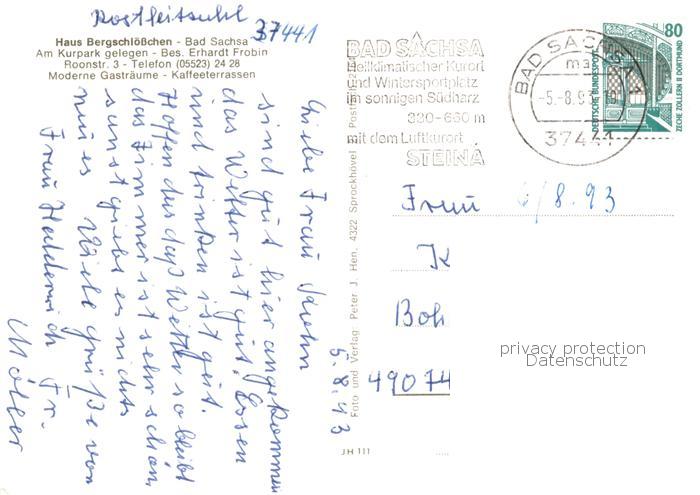 Postleitzahl
37441
Haus Bergschlößchen - Bad Sachsa
Am Kurpark gelegen - Bes. Erhardt Frobin
Roonstr. 3 - Telefon (05523) 24 28
Moderne Gasträume - Kaffeeterrassen
Liebe Frau Kuehn
sind gut hier angekommen
das Wetter ist gut. Essen
und trinken ist gut.
Hoffen das daß Wetter so bleibt
das Zimmer ist sehr schön,
sonst giebt es nichts
neues Viele Grüße von
Frau Fr.
Möller
5.8.93
Foto und Verlag Peter J. Hen, 4322 Sprockhövel
JH 111
BAD SACHSA
Heilklimatischer Kurort
und Wintersportplatz
im sonnigen Südharz
330-660 m
mit dem Luftkurort
STEINA
BAD SACHSA
-5.-8.93
37441
80
DEUTSCHE BUNDESPOST
ZECHE ZOLLERN II DORTMUND
Frau 6/8.93
K
Boh
49074
privacy protection
Datenschutz